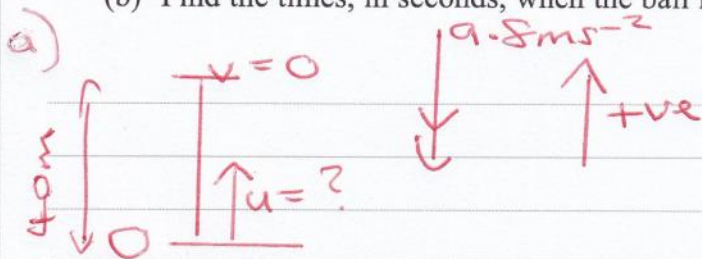 (b) Find the times, in seconds, when the ball
a)
v = 0
9.8ms⁻²
+ve
40m
u = ?
O